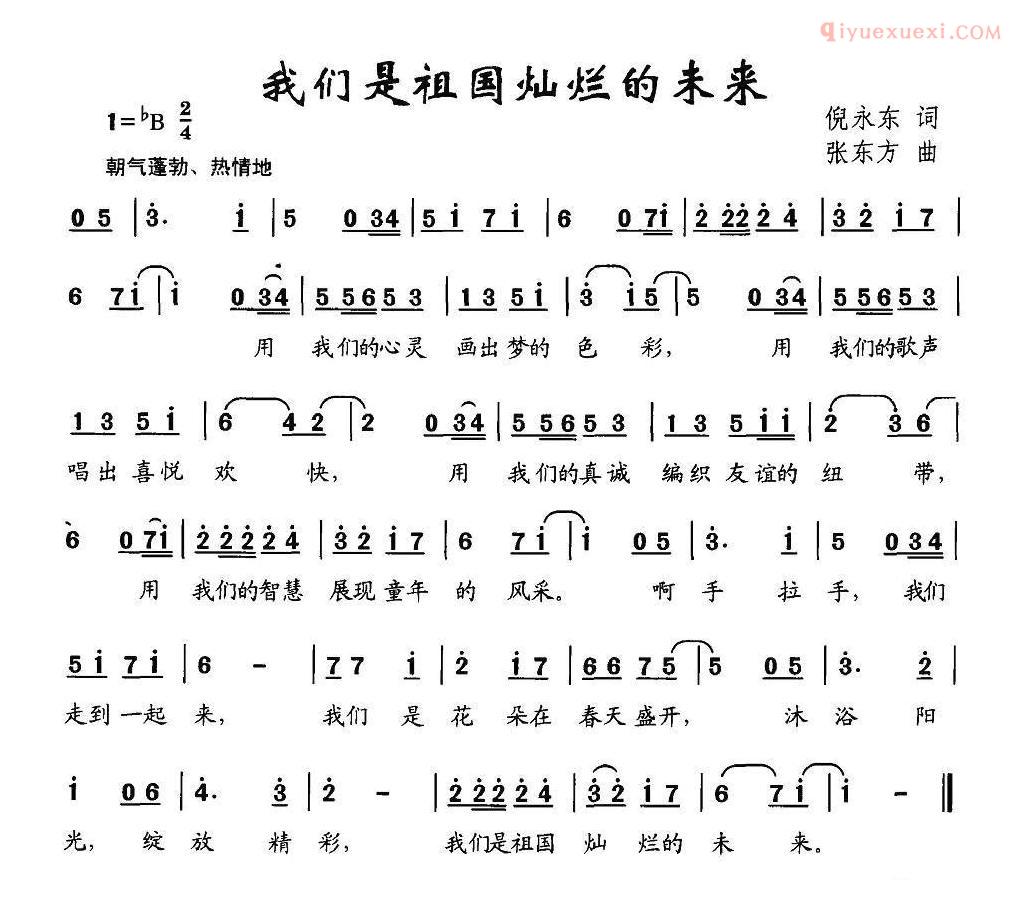 qiyuexuexi.COM
我们是祖国灿烂的未来
1=♭B 2/4
倪永东 词
张东方 曲
朝气蓬勃、热情地
0 5 | 3̇. 1̇ | 5 0 3 4 | 5 1̇ 7 1̇ | 6 0 7 1̇ | 2̇ 2̇ 2̇ 2̇ 4̇ | 3̇ 2̇ 1̇ 7 |
6 7 1̇ | 1̇ 0 3 4 | 5 5 6 5 3 | 1 3 5 1̇ | 3̇ 1̇ 5 | 5 0 3 4 | 5 5 6 5 3 |
用 我们的心灵 画出梦的 色 彩, 用 我们的歌声
1 3 5 1̇ | 6 4 2 | 2 0 3 4 | 5 5 6 5 3 | 1 3 5 1̇ 1̇ | 2 3 6 |
唱出喜悦 欢 快, 用 我们的真诚 编织友谊的 纽 带,
6 0 7 1̇ | 2̇ 2̇ 2̇ 2̇ 4̇ | 3̇ 2̇ 1̇ 7 | 6 7 1̇ | 1̇ 0 5 | 3̇. 1̇ | 5 0 3 4 |
用 我们的智慧 展现童年 的 风采。 啊 手 拉 手, 我们
5 1̇ 7 1̇ | 6 – | 7 7 1̇ | 2̇ 1̇ 7 | 6 6 7 5 | 5 0 5 | 3̇. 2̇ |
走到一起 来, 我们 是 花 朵在 春天盛开, 沐 浴 阳
1̇ 0 6 | 4̇. 3̇ | 2̇ – | 2̇ 2̇ 2̇ 2̇ 4̇ | 3̇ 2̇ 1̇ 7 | 6 7 1̇ | 1̇ – ‖
光, 绽 放 精 彩, 我们是祖国 灿 烂的 未 来。